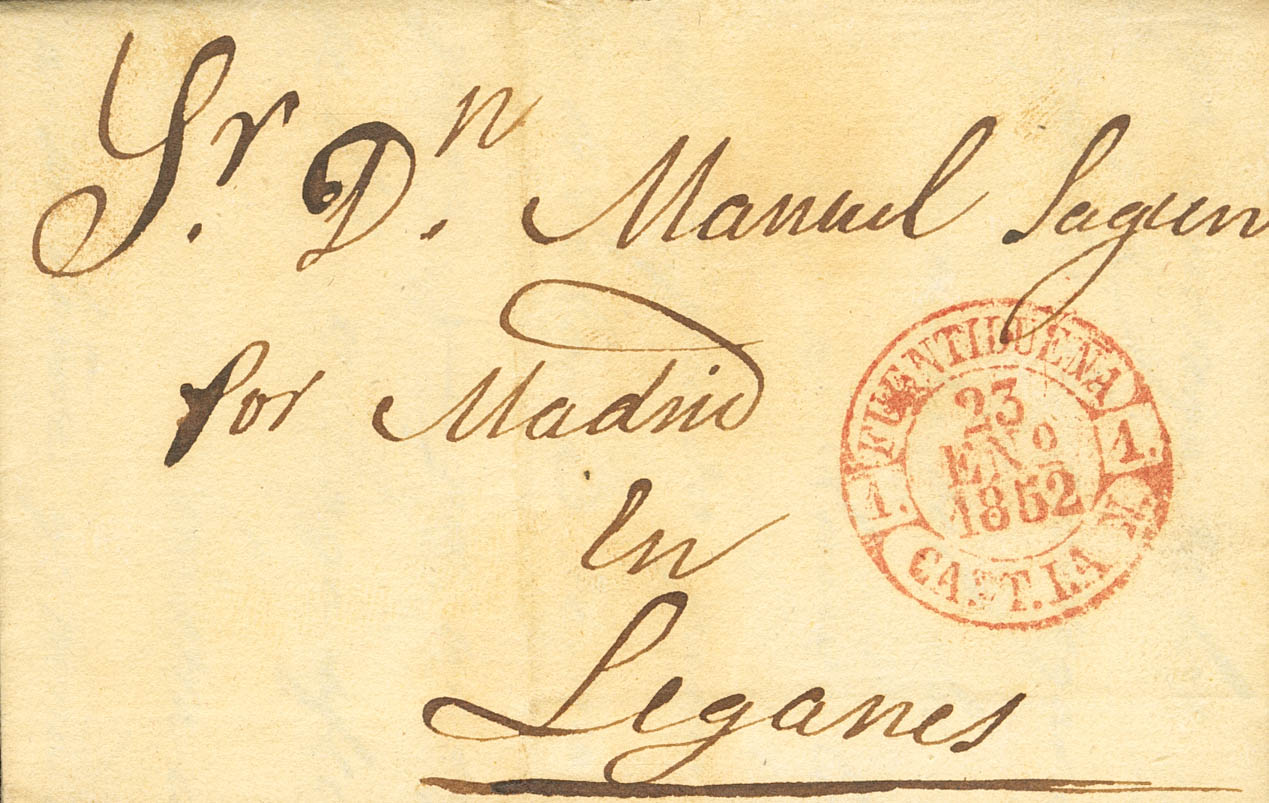 Sr. Dn. Manuel Sagun
por Madrid
En
Leganes
FUENTIDUEÑA
1. 1.
23
ENº
1852
CAST.LA N.